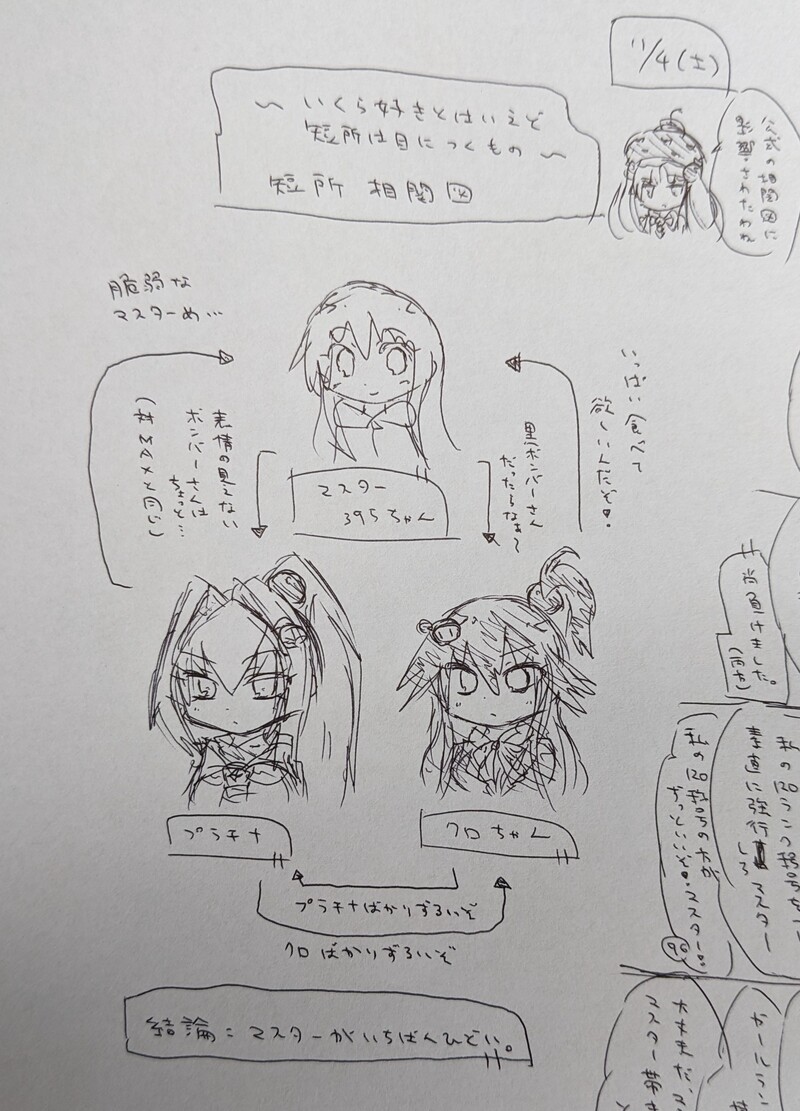 11/4(土)
公式の相関図に
影響されたわね
～いくら好きとはいえど
短所は目につくもの～
短所 相関図
脆弱な
マスターめ…
いっぱい食べて
欲しいんだぞ。
表情の見えない
ボンバーさんは
ちょっと…
(対MAXと同じ)
黒ボンバーさん
だったらなぁ～
マスター
395ちゃん
プラチナ
クロちゃん
プラチナばかりずるいぞ
クロばかりずるいぞ
結論：マスターがいちばんひどい。
尚負けました。
素直に強行しろマスター
ずっといいぞ。マスター。